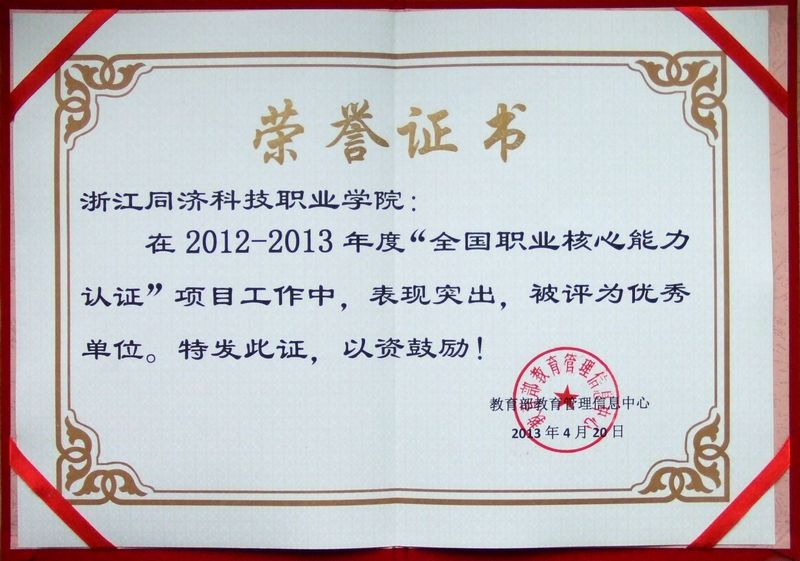 荣誉证书
浙江同济科技职业学院：
在 2012-2013 年度“全国职业核心能力
认证”项目工作中，表现突出，被评为优秀
单位。特发此证，以资鼓励！
教育部教育管理信息中心
教育部教育管理信息中心
2013 年 4 月 20 日